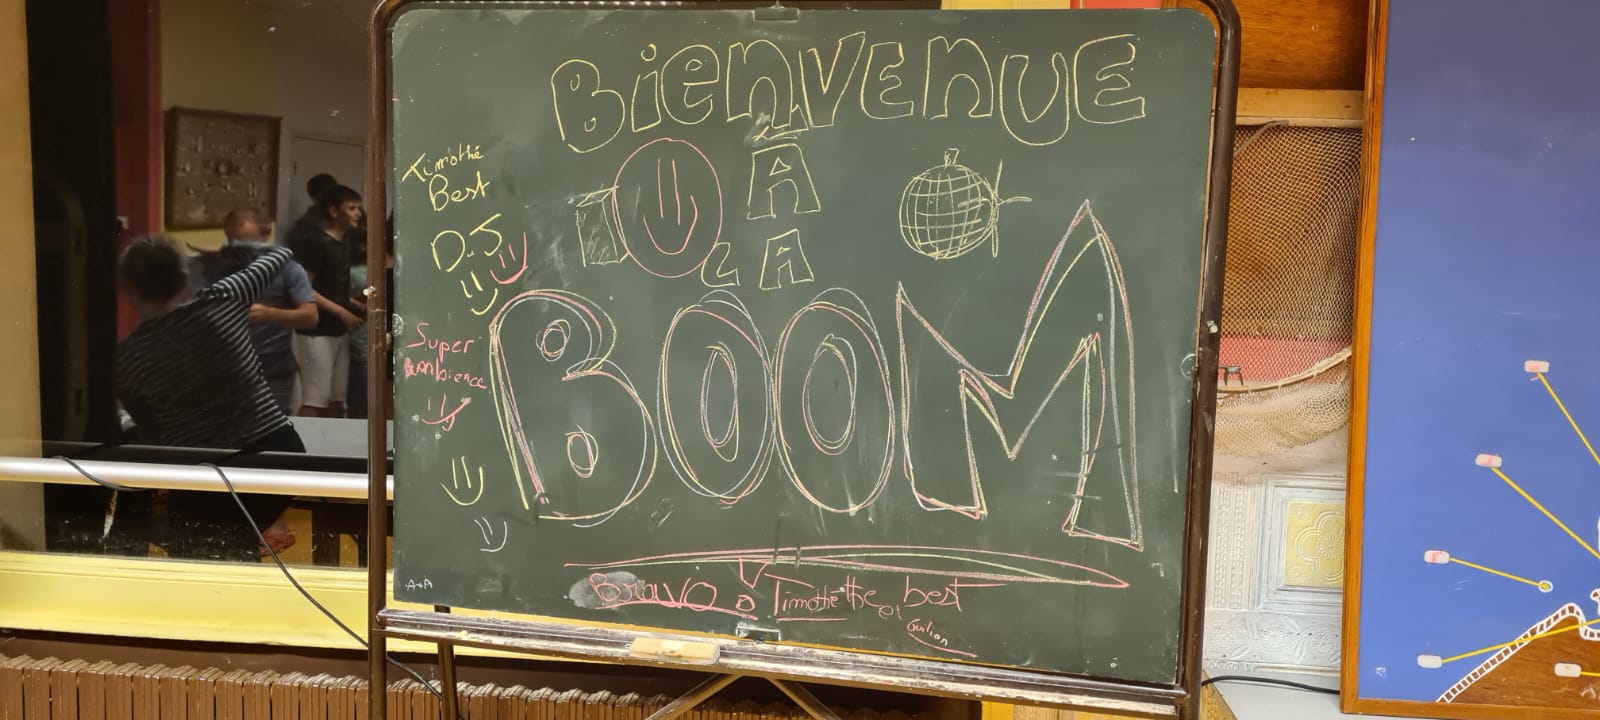 BIENVENUE
À
LA
BOOM
Timothé
Best
D.J
Super
ambience
A+A
Bravo à Timothé the best
et
Guilian